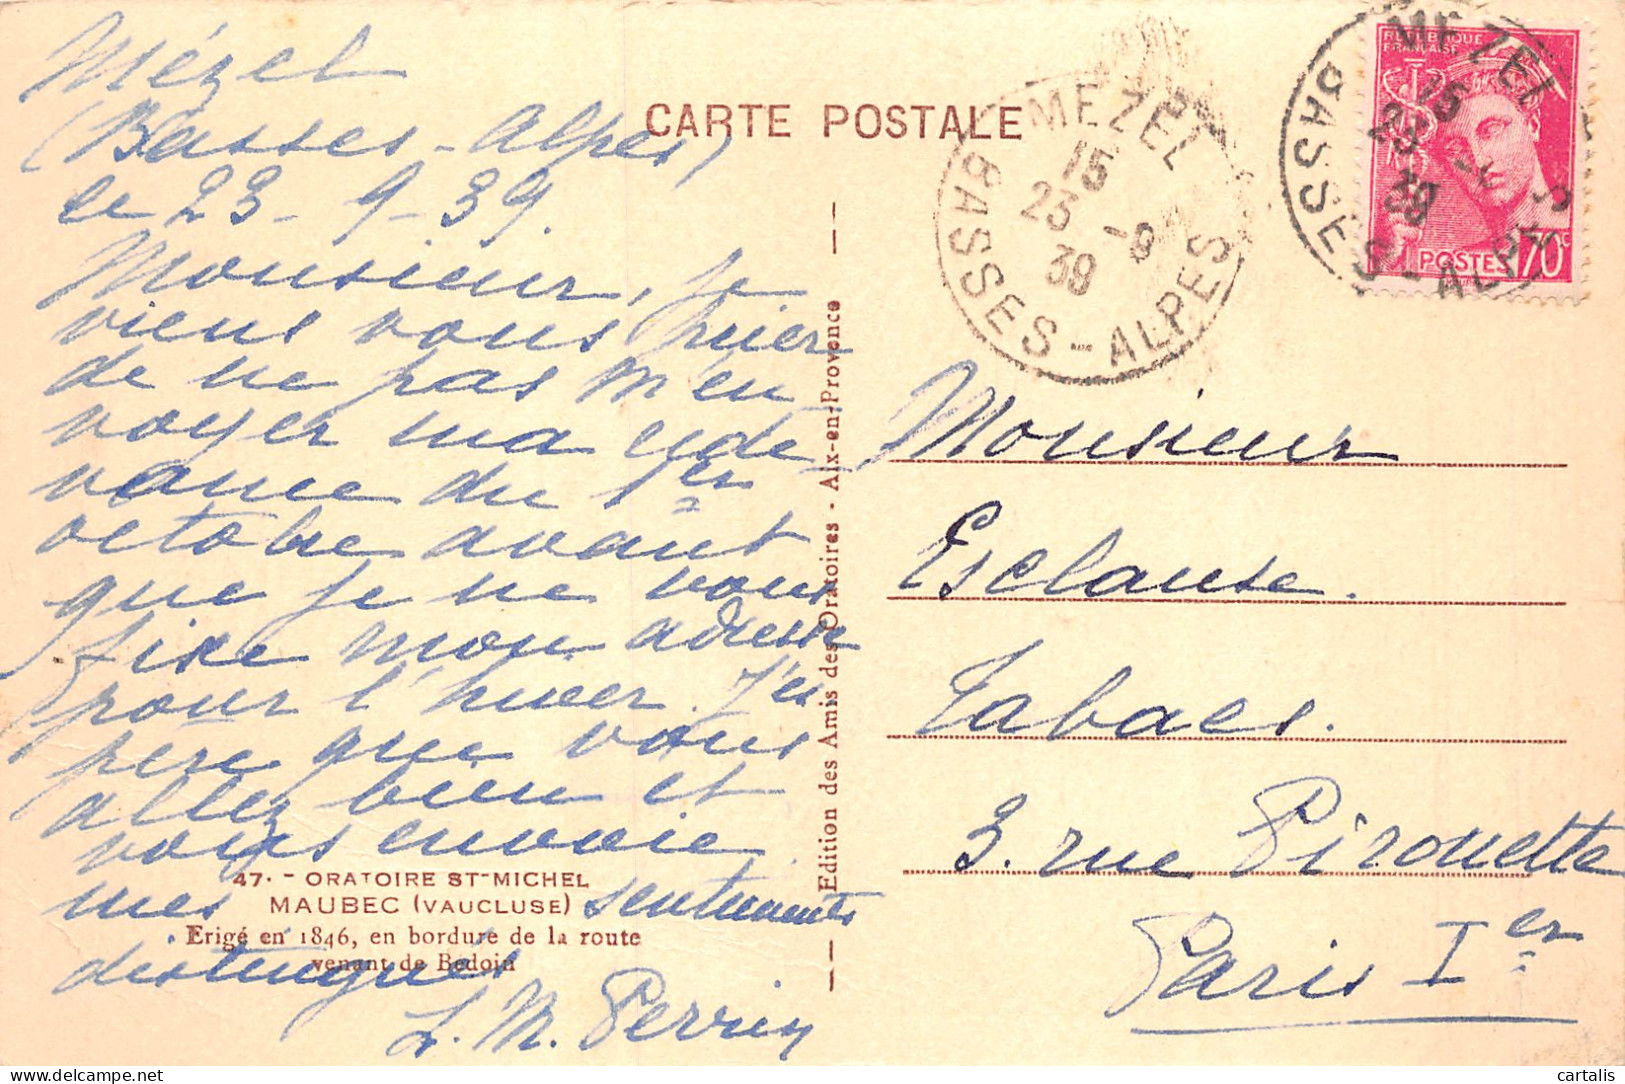 CARTE POSTALE
Mézel
(Basses-Alpes)
le 23-9-39.
Monsieur, je
viens vous prier
de ne pas m'en
voyer ma rede
vance du 1er
octobre avant
que je ne vous
fixe mon adresse
pour l'hiver. J'es
père que vous
allez bien et
vous envoie
mes sentiments
distingués
L. M. Perrin
47. - ORATOIRE ST-MICHEL
MAUBEC (VAUCLUSE)
Erigé en 1846, en bordure de la route
venant de Bedoin
Edition des Amis des Oratoires - Aix-en-Provence
MEZEL
15
23 -9
39
BASSES-ALPES
MEZEL
15
23 -9
39
BASSES-ALPES
REPUBLIQUE
FRANÇAISE
POSTES 70c
Monsieur
Esclause.
Tabacs.
3. rue Pirouette
Paris Ier
cartalis